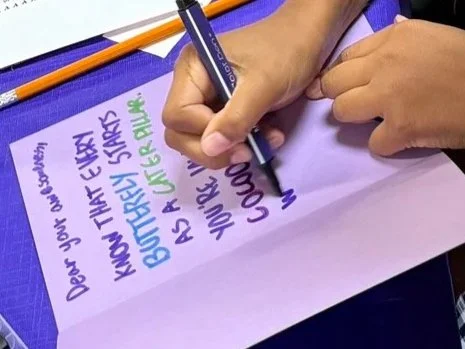 Dear your awesomeness,
KNOW THAT EVERY
BUTTERFLY STARTS
AS A CATERPILLAR.
YOU'RE
COCOO
W